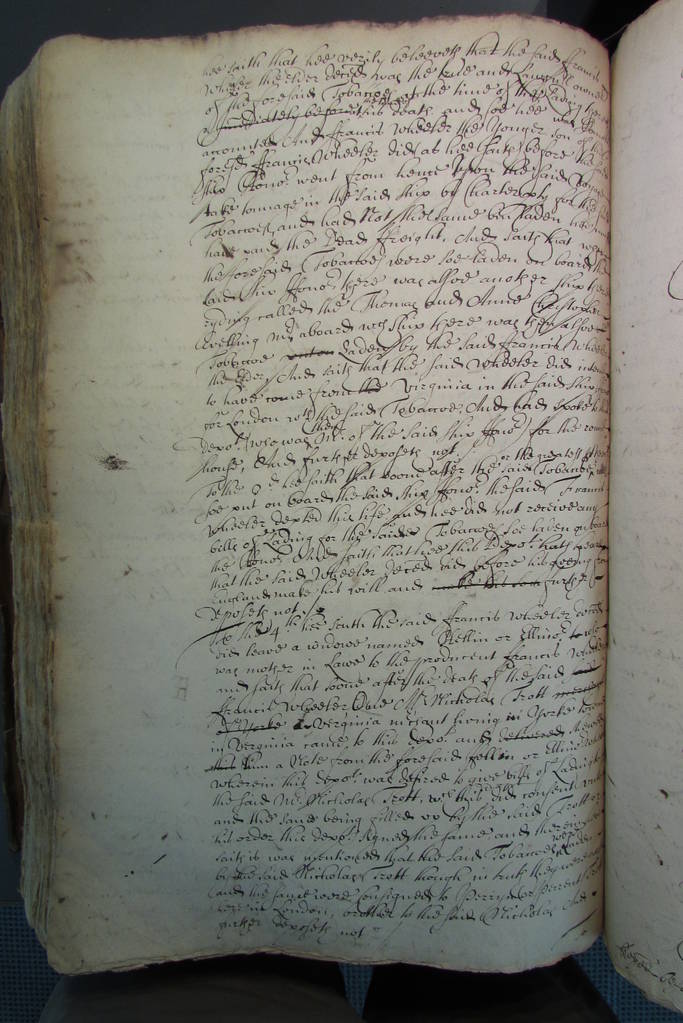 hee saith that hee verily beleeveth that the said Francis
Wheeler the elder deceased was the true and Lawfull owner
of the foresaid Tobaccoes at the time of the Lading thereof
immediately before his death and soe hee was
accounted And Francis Wheeler the Younger son of the
foresd Francis Wheeler did as hee saith before the said
ship Honor went from hence upon the said voyage
take tonnage in the said ship by Charter party for the said
Tobaccoes, and had not the same ben laden hee must
have paid the dead freight, And saith that when
the foresaid Tobaccoes were soe laden on board the
said ship Honor there was alsoe another ship there
ryding called the Thomas and Anne Christopher
Evelling Mr aboard wch ship there was then alsoe
Tobaccoe Laden by the said Francis Wheeler
the elder, And saith that the said Wheeler did intend
to have come from Virginia in the said ship Honor
for London wth the said Tobaccoe, And had spoke to this
depot (who was Mr of the said ship Honor) for the round
house, And further deposeth not.
To the 3d hee saith that soone after the said Tobaccoes or the greatest part were
soe put on board the said ship Honor the said Francis
Wheeler depted this life and hee did not receive any
bills of Lading for the saide Tobaccoes soe laden on board
the Honor And saith that hee this Depot hath heard
that the said Wheeler deceased did before his goeing from
England make his will and further
deposeth not
To the 4th hee saith the said Francis Wheeler deceased
did leave a widowe named Ellin or Ellinor who
was mother in Lawe to the producent Francis Wheeler
and saith that soone after the death of the said
Francis Wheeler One Mr Nicholas Trott
of Yorke a Virginia mrchant living in Yorke
in Virginia came to this depot and delivered
him a Note from the foresaid Ellin or Ellinor
wherein this depot was desired to give bills of Lading to
the said Mr Nicholas Trott, wch this did consent unto
and the same being filled up by the said Trott or
his order this depot signed the same and therein
saith it was mentioned that the said Tobaccoes were laden
by the said Nicholas Trott though in truth they were not
and the same were consigned to Perry
here in London, or other to the said Nicholas And
further deposeth not